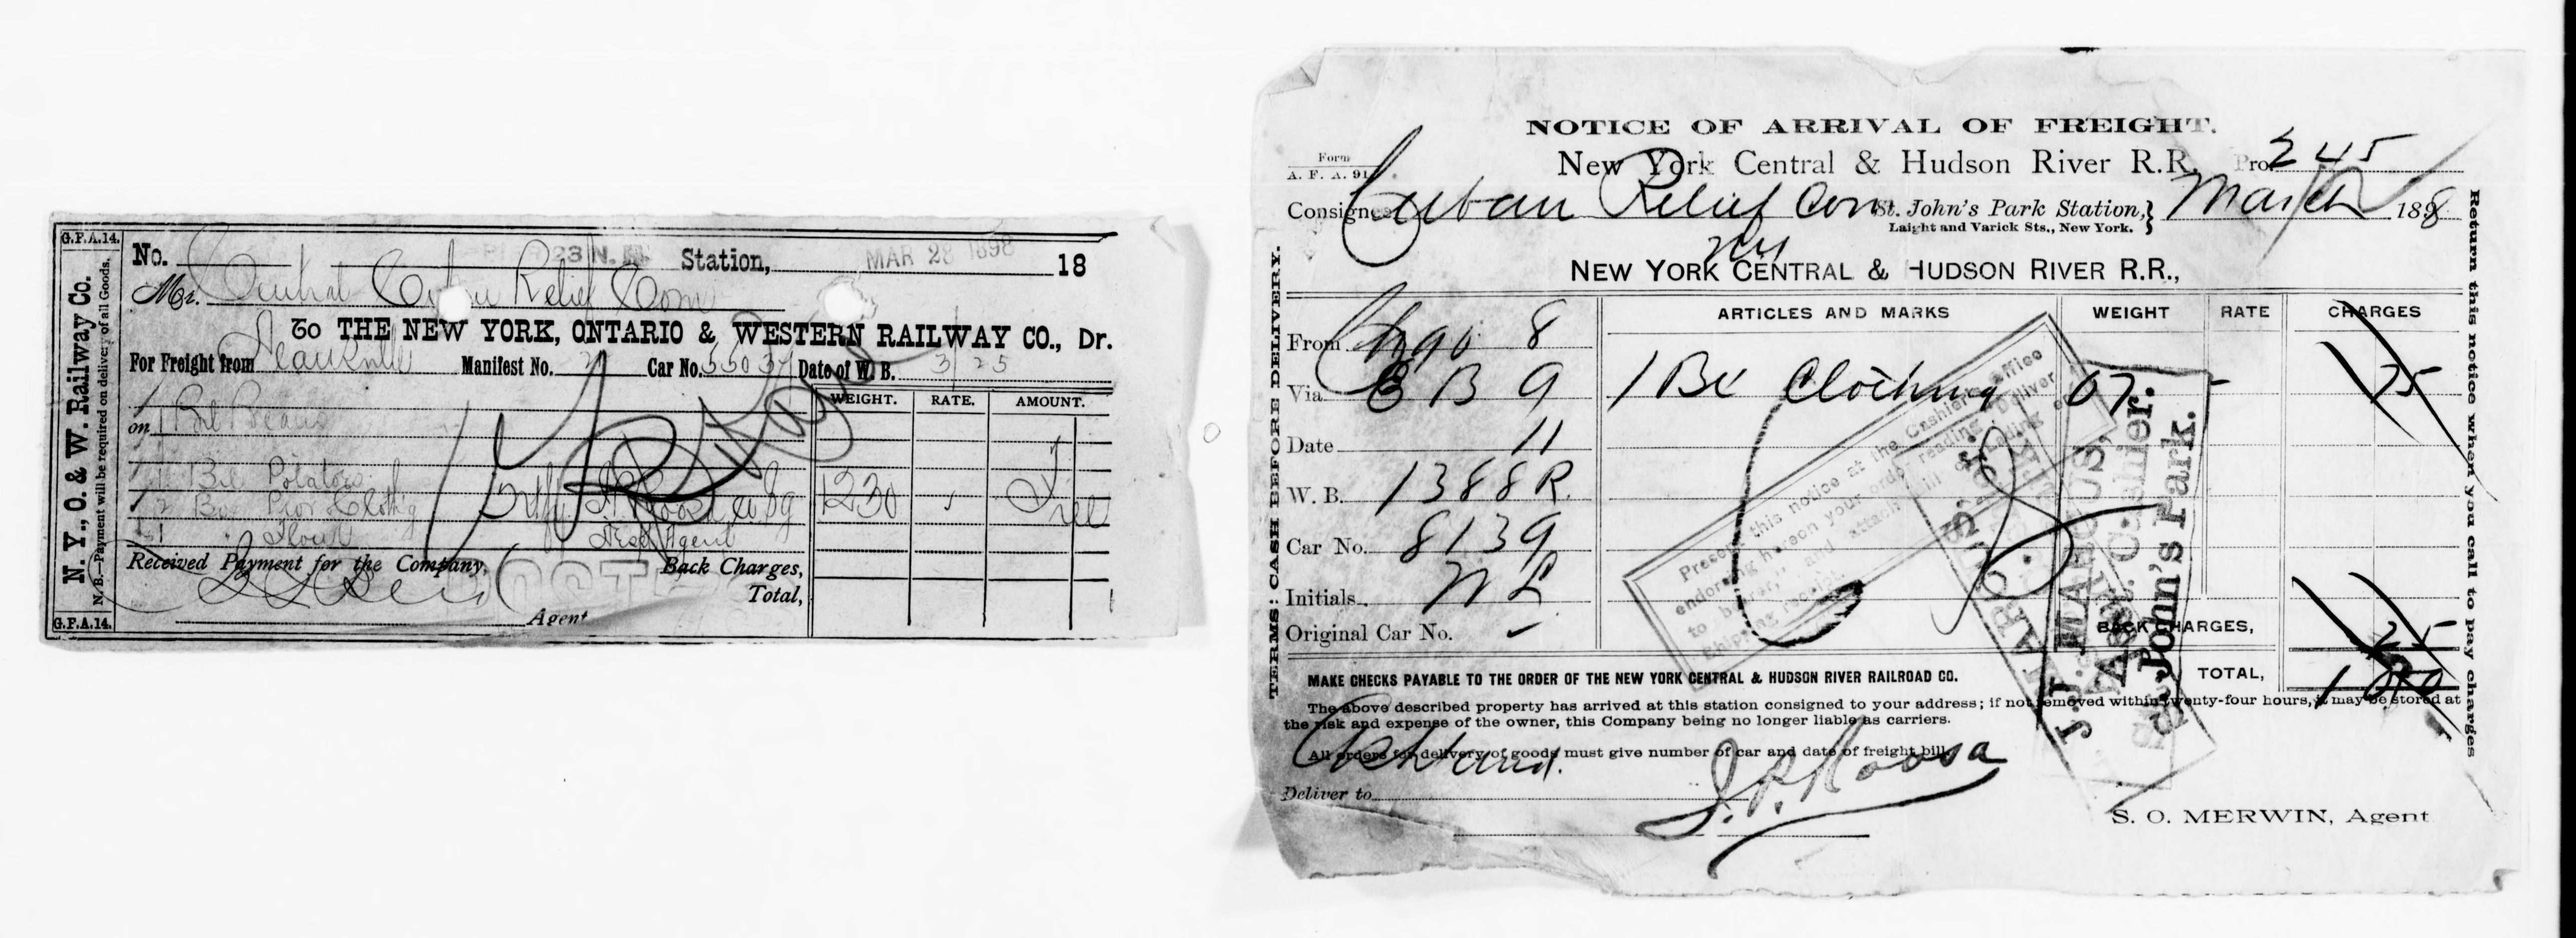 G.F.A.14.
N. Y., O. & W. Railway Co.
N. B.—Payment will be required on delivery of all Goods.
G.F.A.14.
No. Station, MAR 28 1898 18
Mr. Central Cuban Relief Com
To THE NEW YORK, ONTARIO & WESTERN RAILWAY CO., Dr.
For Freight from Manifest No. 2 Car No. 55037 Date of W. B. 3/25
WEIGHT. RATE. AMOUNT.
1 Bbl Beans
on
Bbl Potatoes
2 Bx Clothg 1230 Free
1 " Flour Agent
Received Payment for the Company, Back Charges,
Total,
Agent
NOTICE OF ARRIVAL OF FREIGHT.
Form
A. F. A. 91.
New York Central & Hudson River R.R. Pro 245
Consignee Cuban Relief Com St. John's Park Station, March 1898
Laight and Varick Sts., New York.
NEW YORK CENTRAL & HUDSON RIVER R.R.,
ARTICLES AND MARKS WEIGHT RATE CHARGES
From Chgo 8
Via B 9 1 Bx Clothing 67 75
Date 11
W. B. 1388 R.
Car No. 8139
Initials. N L
Original Car No.
BACK CHARGES, 25
TOTAL, 1
Present this notice at the Cashier's office
endorsing hereon your order reading "Deliver
to bearer," and attach bill of lading or
Shipping receipt.
J. J. MARCUS,
Asst. Cashier.
St. John's Park.
MAKE CHECKS PAYABLE TO THE ORDER OF THE NEW YORK CENTRAL & HUDSON RIVER RAILROAD CO.
The above described property has arrived at this station consigned to your address; if not removed within twenty-four hours, it may be stored at
the risk and expense of the owner, this Company being no longer liable as carriers.
All orders for delivery of goods must give number of car and date of freight bill.
Deliver to
S. O. MERWIN, Agent
TERMS: CASH BEFORE DELIVERY.
Return this notice when you call to pay charges